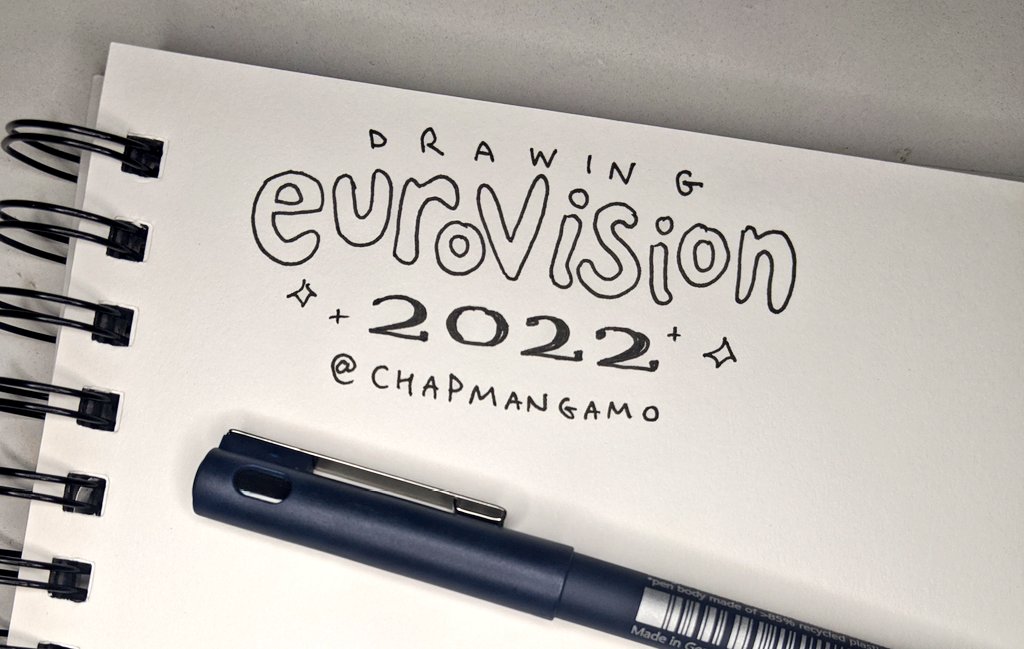 DRAWING
euroVision
2022
@CHAPMANGAMO
*pen body made of >85% recycled
Made in